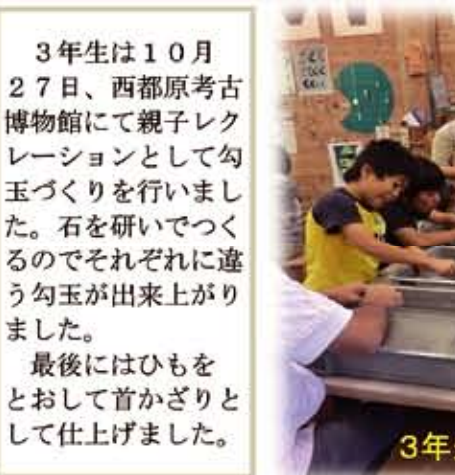 ３年生は１０月
２７日、西都原考古
博物館にて親子レク
レーションとして勾
玉づくりを行いまし
た。石を研いでつく
るのでそれぞれに違
う勾玉が出来上がり
ました。
　最後にはひもを
とおして首かざりと
して仕上げました。
３年